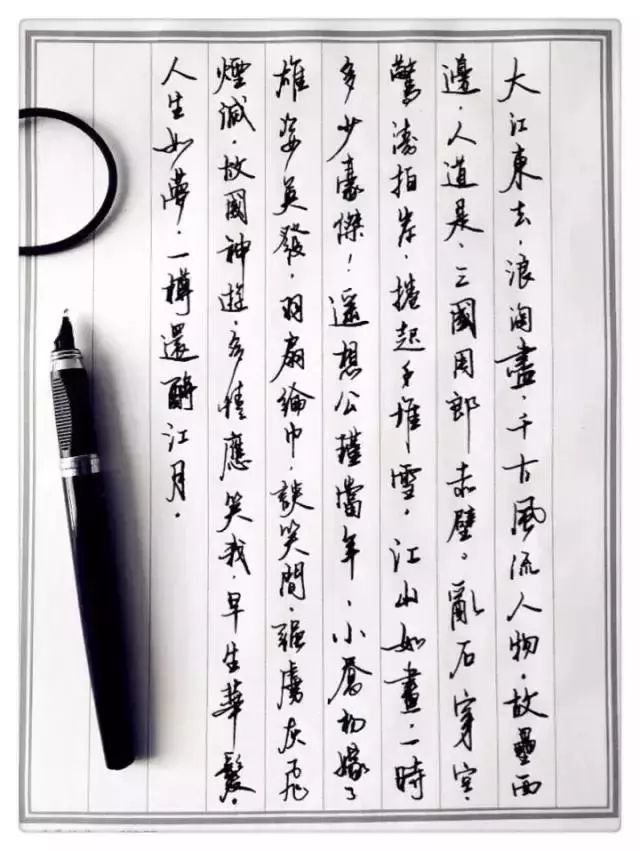 大江東去，浪淘盡，千古風流人物，故壘西
邊，人道是，三國周郎赤壁。亂石穿空，
驚濤拍岸，捲起千堆雪，江山如畫，一時
多少豪傑！遥想公瑾當年，小喬初嫁了
雄姿英發，羽扇綸巾，談笑間，強虜灰飛
煙滅，故國神遊，多情應笑我，早生華髮，
人生如夢，一樽還酹江月。